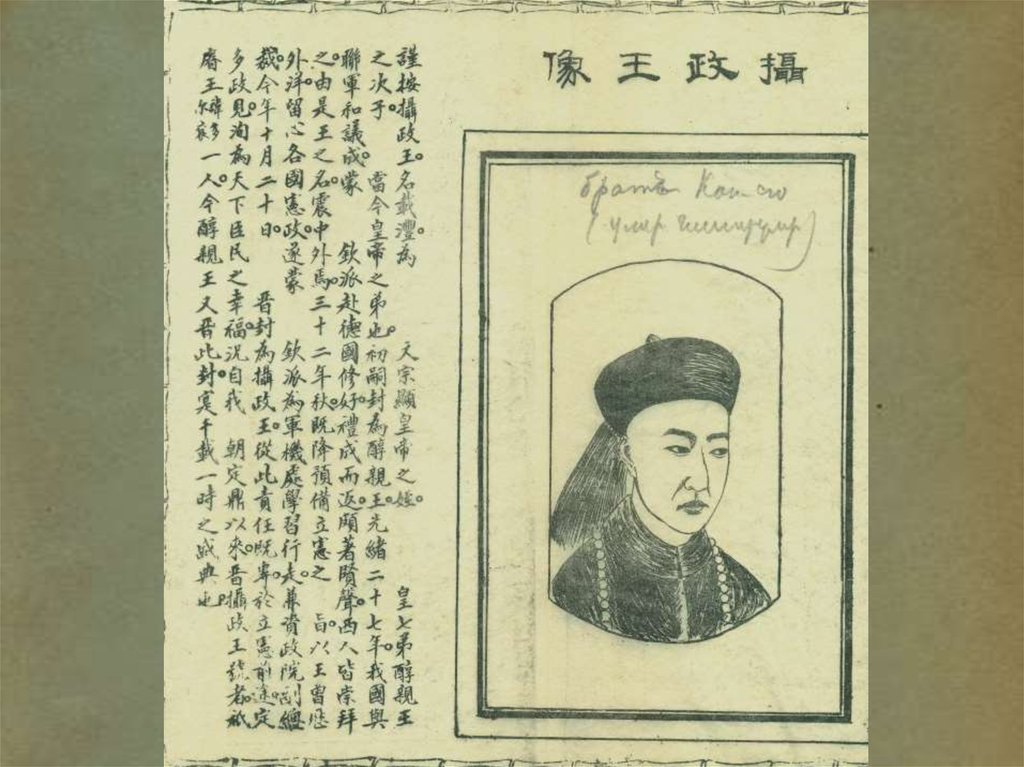 攝政王像
братъ
謹按攝政王。名載灃。為 文宗顯皇帝之姪。 皇七弟醇親王
之次子。 當今皇帝之弟也。初嗣封為醇親王。光緒二十七年。我國與
聯軍和議成。蒙 欽派赴德國修好。禮成而返。頗著賢聲。西人皆崇拜
之。由是王之名震中外焉。三十二年秋。既降預備立憲之 旨。以王曾歷
外洋。留心各國憲政。遂蒙 欽派為軍機處學習行走。兼資政院副總
裁。今年十月二十日。 晋封為攝政王。從此責任既專。於立憲前途。定
多政見。洵為天下臣民之幸福。況自我 朝定鼎以來。晋攝政王號者。祇
睿王諱多爾袞一人。今醇親王又晋此封。寔千載一時之盛典也。